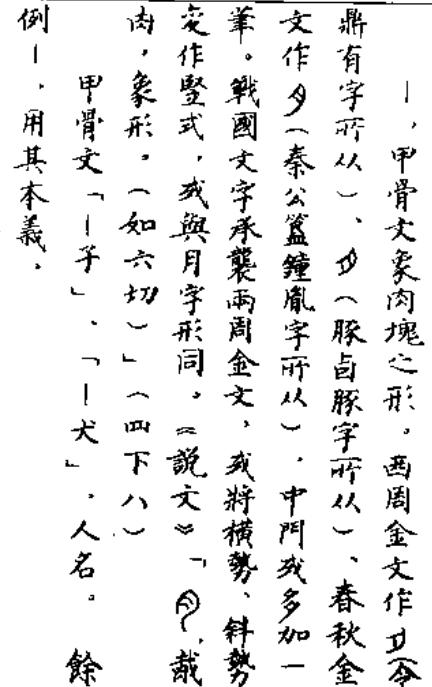 ｜，甲骨文象肉塊之形。西周金文作（令
鼎有字所从）、（豚卣豚字所从）、春秋金
文作（秦公簋鐘胤字所从），中間或多加一
筆。戰國文字承襲兩周金文，或將橫勢、斜勢
变作竪式，或與月字形同。《説文》「，胾
肉，象形。（如六切）」（四下八）
甲骨文「｜子」、「｜犬」，人名。 餘
例｜，用其本義，